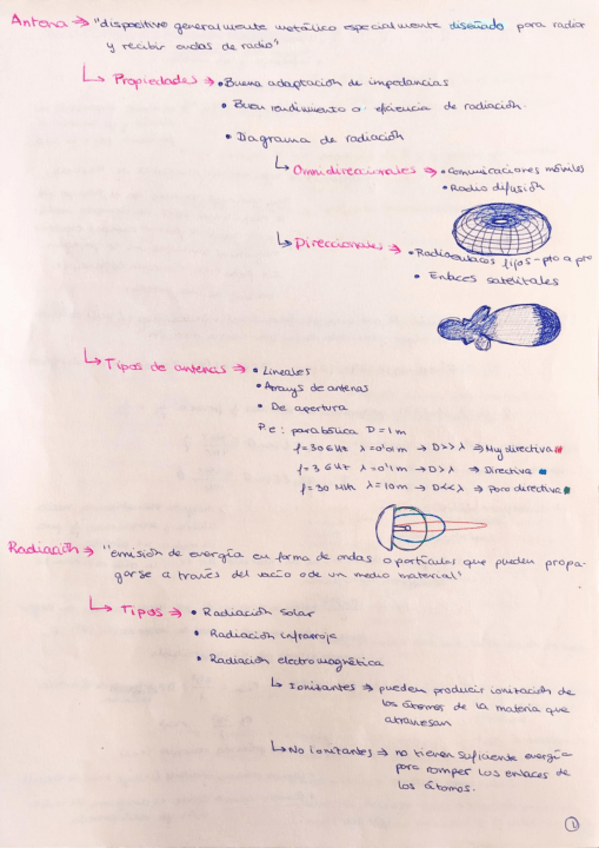 Antena → "dispositivo generalmente metálico especialmente diseñado para radiar
y recibir ondas de radio"
↳ Propiedades → • Buena adaptación de impedancias
• Buen rendimiento o eficiencia de radiación.
• Diagrama de radiación
↳ Omnidireccionales → • Comunicaciones móviles
• Radio difusión
↳ Direccionales → • Radioenlaces fijos - pto a pto
• Enlaces satelitales
↳ Tipos de antenas → • Lineales
• Arrays de antenas
• De apertura
P.e: parabólica D = 1m
f = 30 GHz λ = 0'01m → D>>λ → Muy directiva
f = 3 GHz λ = 0'1m → D>λ → Directiva
f = 30 MHz λ = 10m → D<<λ → Poco directiva
Radiación → "emisión de energía en forma de ondas o partículas que pueden propa-
garse a través del vacío o de un medio material"
↳ Tipos → • Radiación solar
• Radiación infrarroja
• Radiación electromagnética
↳ Ionizantes → pueden producir ionización de
los átomos de la materia que
atraviesan
↳ No ionizantes → no tienen suficiente energía
para romper los enlaces de
los átomos.
1